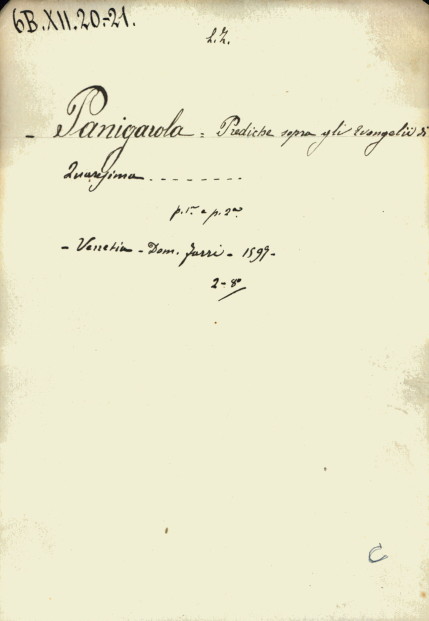 6B.XII.20-21.
L.Z.
- Panigarola = Prediche sopra gli Evangelii di
Quaresima - - - - - - - -
p. 1ª e p. 2ª
- Venetia - Dom. Farri - 1597 -
2 - 8º
C